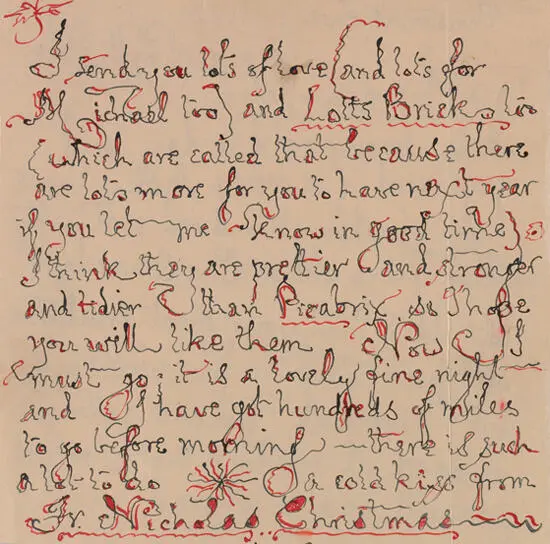 I send you lots of love (and lots for
Michael too) and Lotts Bricks too
(which are called that because there
are lots more for you to have next year
if you let me know in good time).
I think they are prettier and stronger
and tidier than Picabrix. So I hope
you will like them. Now I
must go; it is a lovely fine night
and I have got hundreds of miles
to go before morning — there is such
a lot to do. a cold kiss from
Fr. Nicholas Christmas